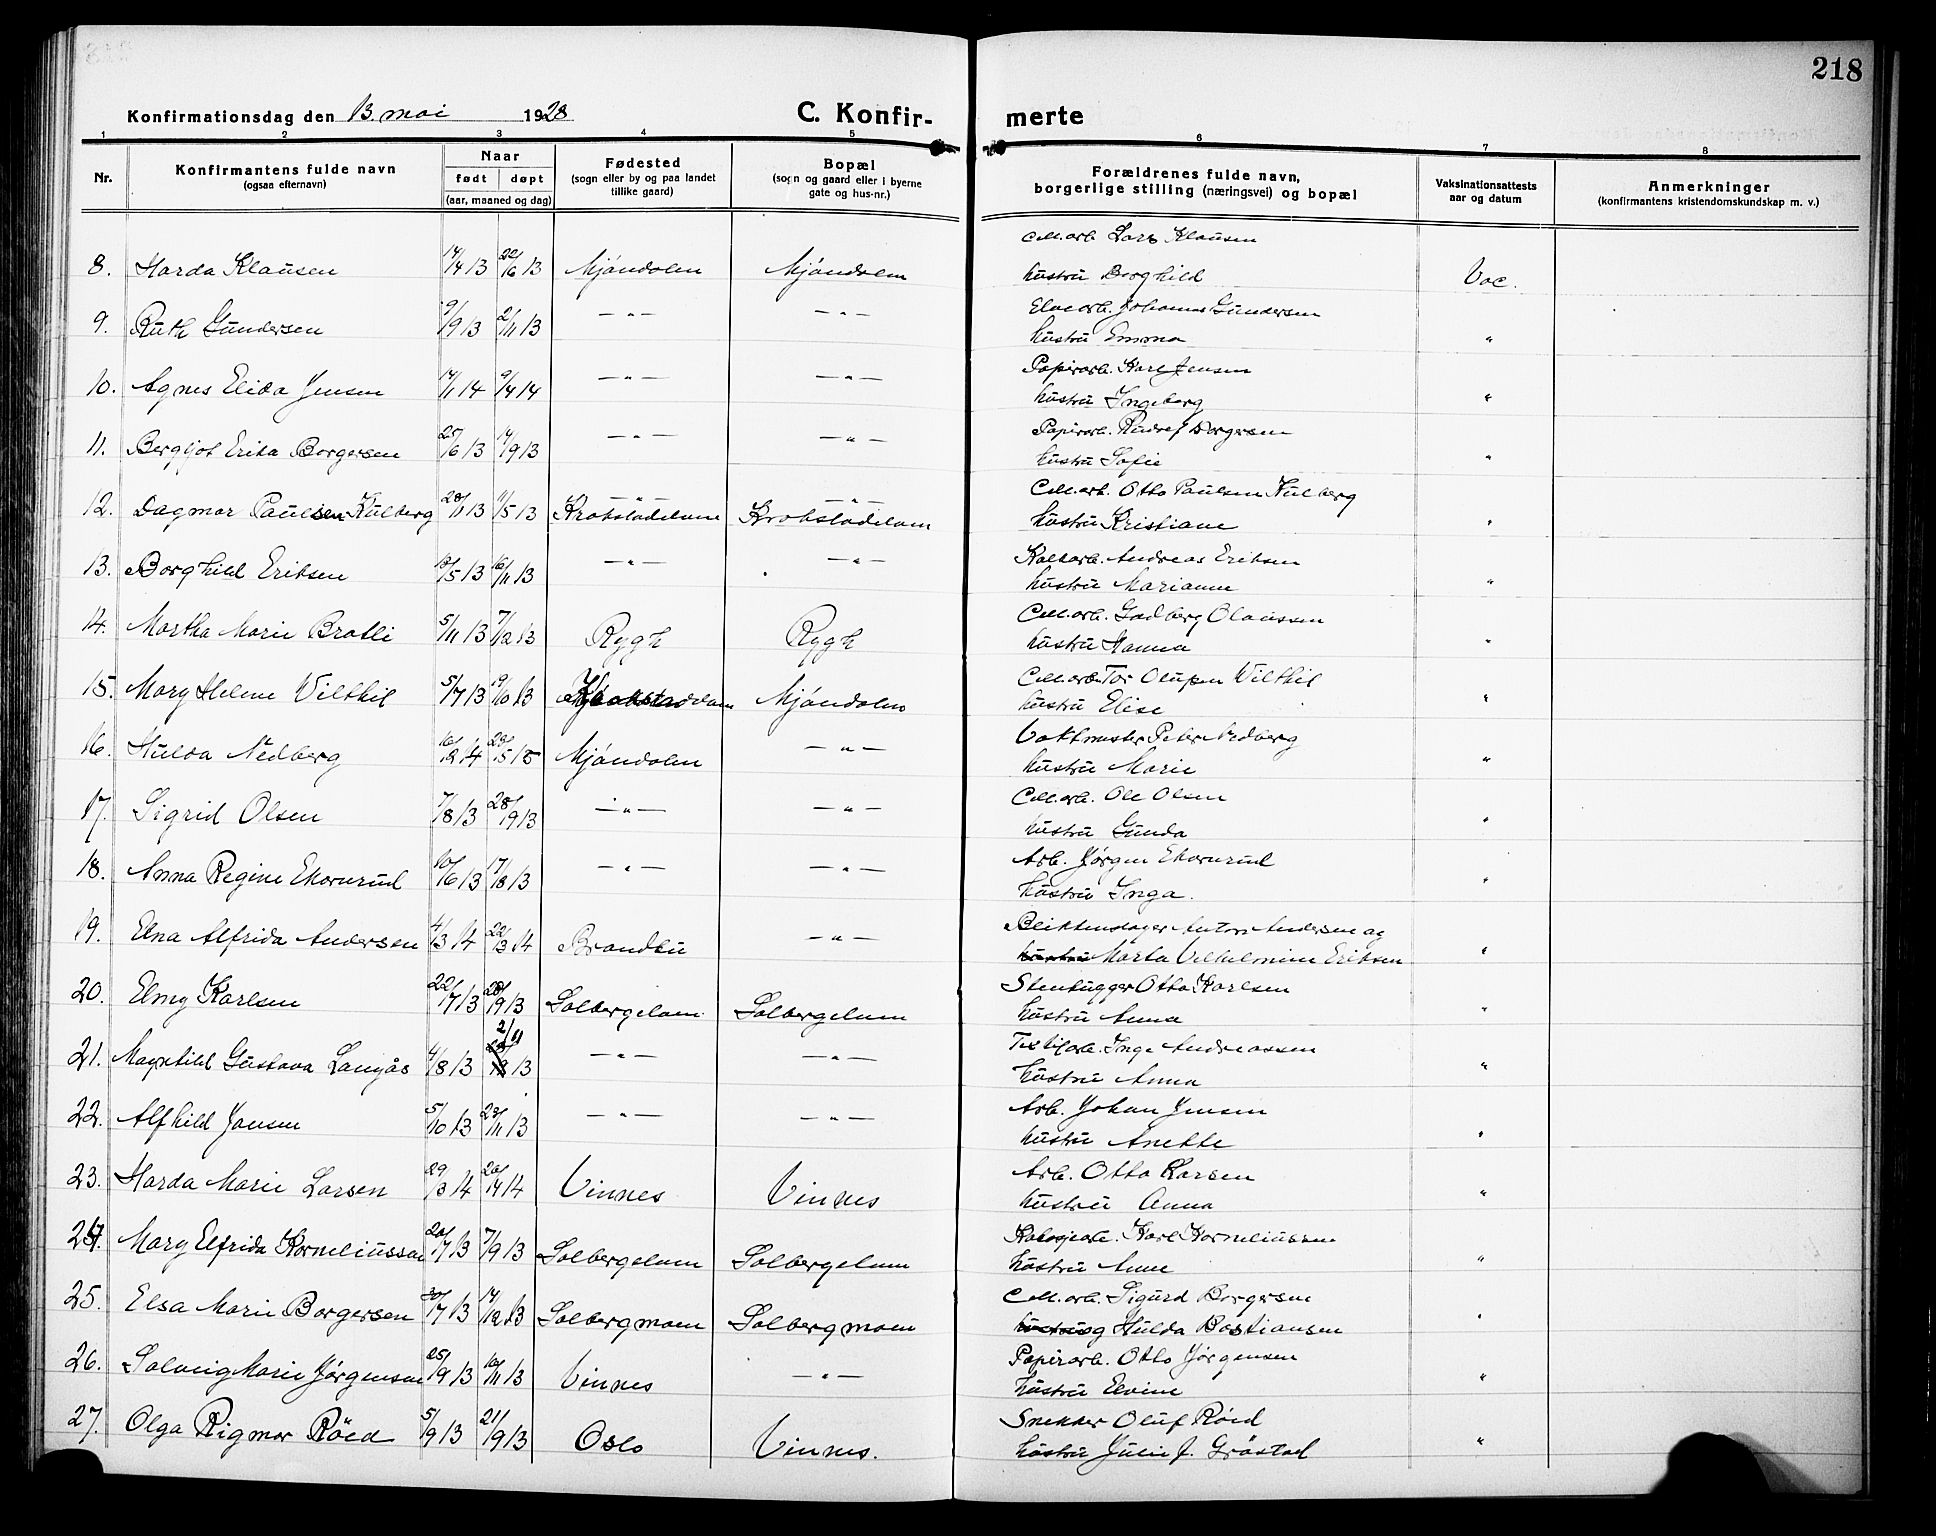 218
Konfirmationsdag den 13. mai 1928
C. Konfir- merte
1 2 3 4 5 6 7 8
Nr.
Konfirmantens fulde navn
(ogsaa efternavn)
Naar
født døpt
(aar, maaned og dag)
Fødested
(sogn eller by og paa landet
tillike gaard)
Bopæl
(sogn og gaard eller i byerne
gate og hus-nr.)
Forældrenes fulde navn,
borgerlige stilling (næringsvei) og bopæl
Vaksinationsattests
aar og datum
Anmerkninger
(konfirmantens kristendomskundskap m. v.)
Cell.arb. Lars Klausen
8. Harda Klausen 14/4 13 22/6 13 Mjöndalen Mjöndalen hustru Borghild Vac.
Johannes Gundersen
9. Ruth Gundersen 9/9 13 2/11 13 —"— —"— hustru Emma "
Papirarb. Karl Jensen
10. Agnes Elida Jensen 14/1 14 9/4 14 —"— —"— hustru Ingeborg "
Papirarb. Borgersen
11. Bergljot Erika Borgersen 25/6 13 14/9 13 —"— —"— hustru Sofie "
Cell.arb. Otto Paulsen Kulberg
12. Dagmar Paulsen Kulberg 20/1 13 1/5 13 —"— Krokstadelven —"— Krokstadelven hustru Kristiane "
Kalkarb. Andreas Eriksen
13. Borghild Eriksen /5 13 16/11 13 —"— —"— hustru Marianne "
Cell.arb. Gudberg Olaussen
14. Martha Marie Bratli 5/11 13 7/12 13 Rygh Rygh hustru Hanna "
Cell.arb. Tor Olufsen Vilthil
15. Mary Helene Vilthil 5/7 13 19/10 13 Mjöndalen hustru Elise "
Vaktmester Peter Nedberg
16. Hulda Nedberg Mjöndalen —"— hustru Marie "
Cell.arb. Ole Olsen
17. Sigrid Olsen 7/8 13 28/9 13 —"— —"— hustru Gunda "
Arb. Jørgen Ekornrud
18. Anna Regine Ekornrud 10/6 13 17/8 13 —"— —"— hustru Inga. "
Blikkenslager Anton Andersen og
19. Edna Alfrida Andersen 4/3 14 22/3 14 Brandbu —"— hustru Marta Vilhelmine Eriksen "
Stenhugger Otto Karlsen
20. Elmy Karlsen 22/7 13 28/9 13 Solbergelven Solbergelven hustru Anna "
2/11
Textilarb. Inge Andreassen
21. Magnhild Gustava Langås 4/8 13 13 —"— —"— hustru Anna "
Arb. Johan Jensen
22. Alfhild Jensen 5/10 13 23/11 13 —"— —"— hustru Anette "
Arb. Otto Larsen
23. Harda Marie Larsen 29/3 14 20/4 14 Vinnes Vinnes hustru Anna "
Karl Korneliussen
24. Mary Elfrida Korneliussen 20/7 13 7/9 13 Solbergelven Solbergelven hustru Anne "
Cell.arb. Sigurd Borgersen
25. Elsa Marie Borgersen 30/7 13 14/12 13 Solbergmoen Solbergmoen og Hulda Bastiansen "
Papirarb. Otto Jørgensen
26. Solveig Marie Jørgensen 25/9 13 16/11 13 Vinnes —"— hustru Elvine "
Snekker Oluf Röed
27. Olga Rigmor Röed 5/9 13 21/9 13 Oslo Vinnes. hustru Julie J. Gröstad "